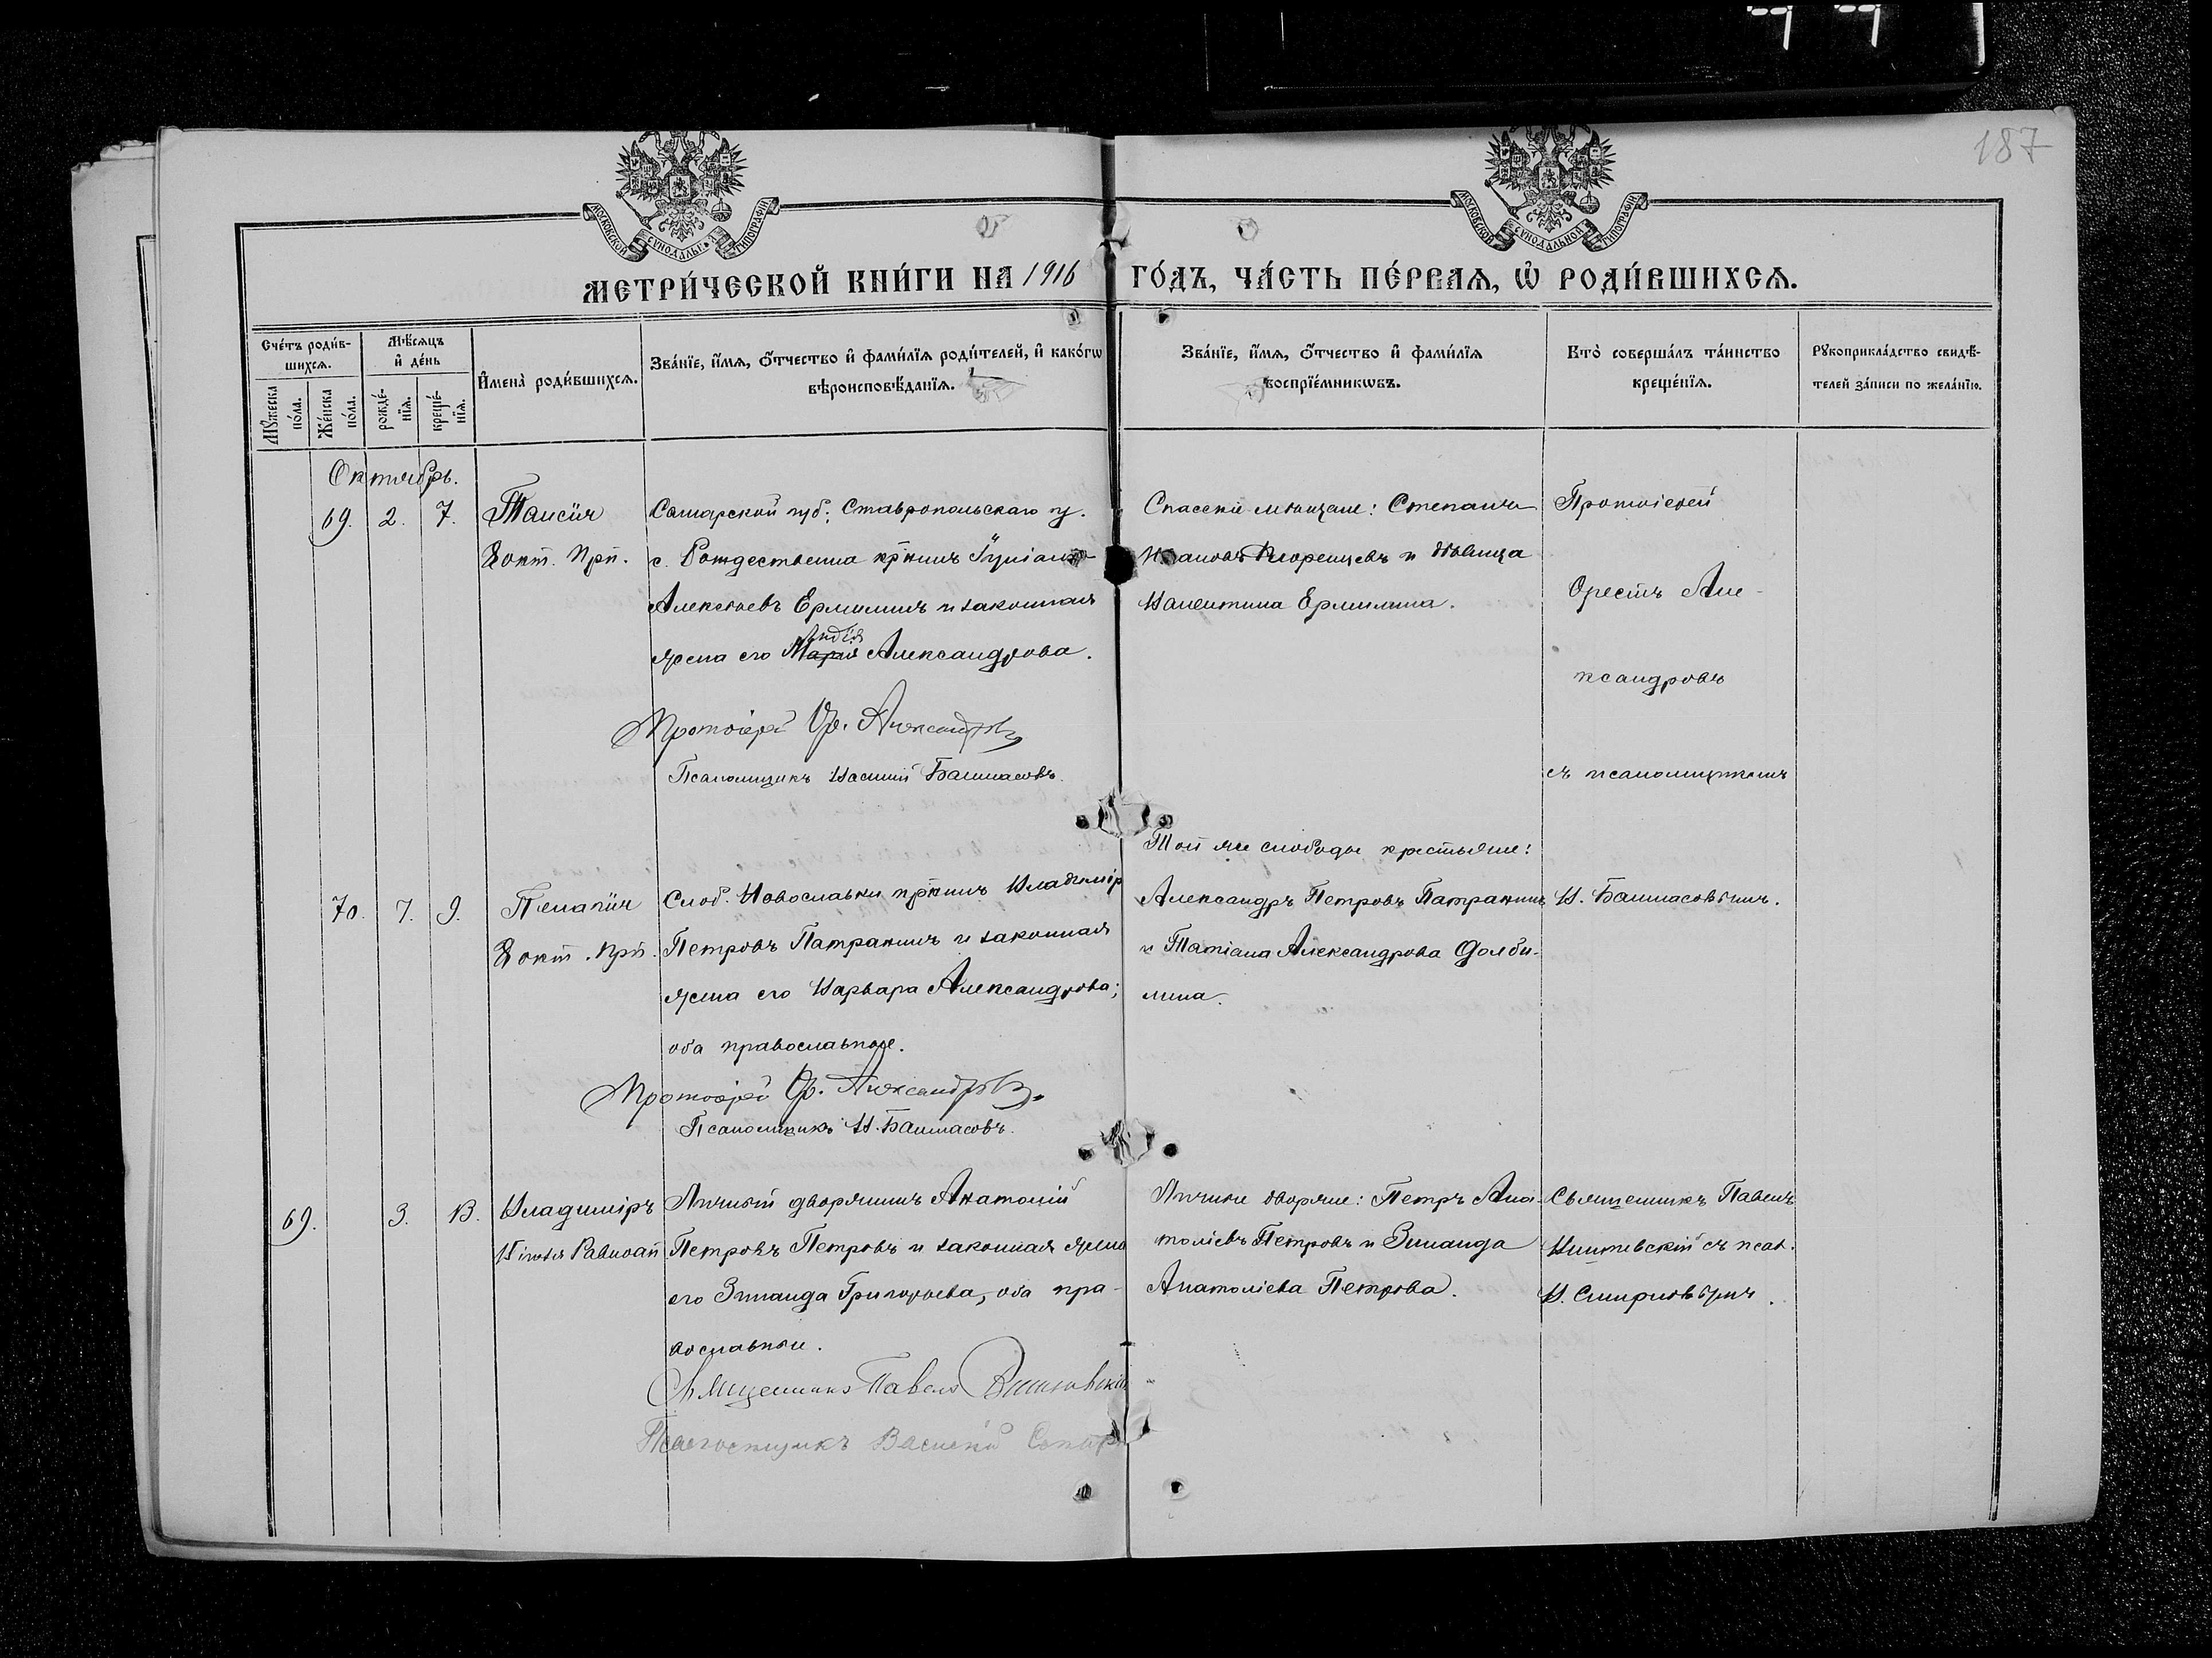 187
МОСКОВСКОЙ СѴНОДАЛЬНОЙ ТИПОГРАФІИ
МОСКОВСКОЙ СѴНОДАЛЬНОЙ ТИПОГРАФІИ
МЕТРИ́ЧЕСКОЙ КНИ́ГИ НА 1916 ГО́ДЪ, ЧА́СТЬ ПЕ́РВАѦ, Ѡ҆ РОДИ́ВШИХСѦ.
Сче́тъ роди́в-
шихсѧ.
Мꙋ́жеска по́ла.
Же́нска по́ла.
Мѣ́сѧцъ
и҆ де́нь
рожде́-
нїѧ.
креще́-
нїѧ.
И҆мена̀ роди́вшихсѧ.
Зва́нїе, и҆́мѧ, ѻ҆́тчество и҆ фами́лїѧ роди́телей, и҆ како́гѡ
вѣроисповѣ́данїѧ.
Зва́нїе, и҆́мѧ, ѻ҆́тчество и҆ фами́лїѧ
воспрїе́мникѡвъ.
Кто̀ соверша́лъ та́инство
креще́нїѧ.
Рꙋкоприкла́дство свидѣ́-
телей за́писи по жела́нїю.
Октябрь.
69. 2. 7. Таисія
8 окт. Прп.
Самарской губ. Ставропольскаго у.
с. Рождествена
Алексѣевъ Ермилинъ и законная
жена его Марія Лидія Александрова.
Протоіерей Ор. Александровъ
Псаломщикъ Василій Башмасовъ.
Спасскіе мѣщане: Степанъ
Ивановъ и дѣвица
Валентина Ермилина.
Протоіерей
Орестъ Але-
ксандровъ
съ псаломщикомъ
В. Башмасовымъ.
70. 7. 9. Пелагія
8 окт. Прп.
Слоб. Новославки Владиміръ
Петровъ Патракинъ и законная
жена его Варвара Александрова;
оба православные.
Протоіерей Ор. Александровъ.
Псаломщикъ В. Башмасовъ.
Той же слободы крестьяне:
Александръ Петровъ Патракинъ
и Татіана Александрова Долби-
лина.
69. 3. 13. Владиміръ
15 іюля Равноап
Личный дворянинъ Анатолій
Петровъ Петровъ и законная жена
его Зинаида Григорьева, оба пра-
вославные.
Священникъ Павелъ
Псаломщикъ Василій
Личные дворяне: Петръ Ана-
толіевъ Петровъ и Зинаида
Анатоліева Петрова.
Священникъ Павелъ
съ псал.
В. Смирновымъ.